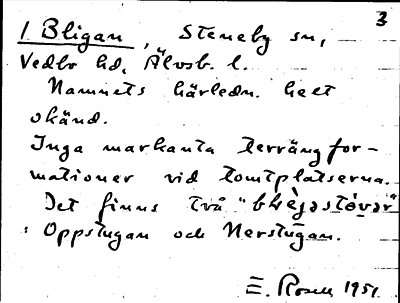 3
1 Bligan, Steneby sn,
Vedbo hd, Älvsb. l.
Namnets härledn. helt
okänd.
Inga markanta terrängfor-
mationer vid tomtplatserna.
Det finns två
Oppstugan och Nerstugan.
E. Rosell 1951